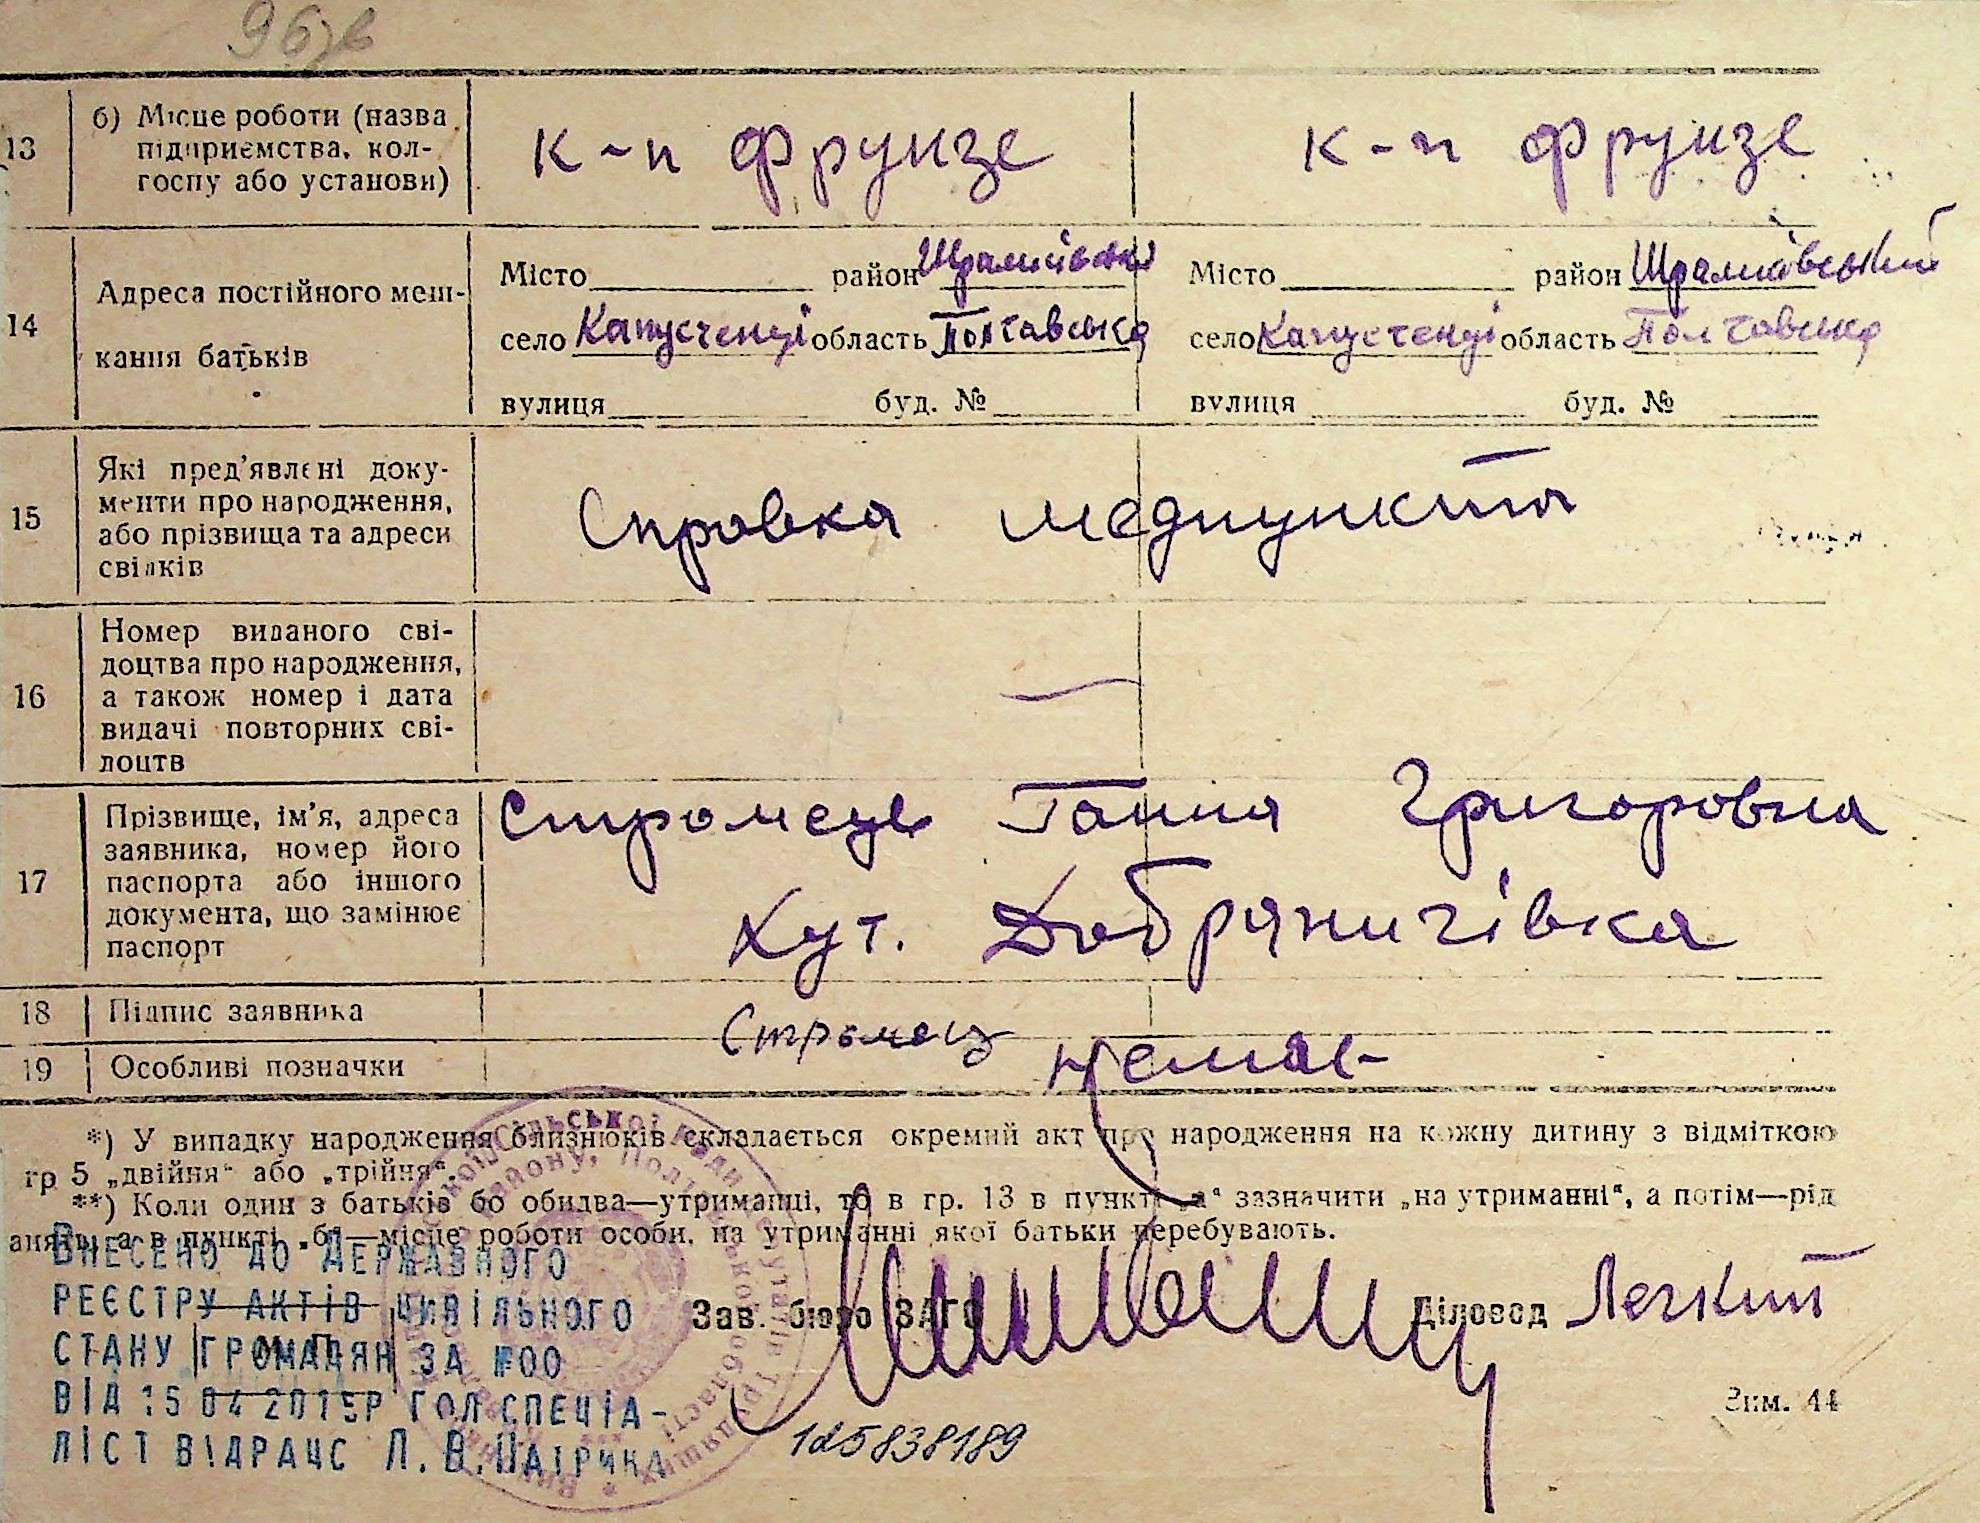 96зв
13
б) Місце роботи (назва
підприємства, кол-
госпу або установи)
к-п Фрунзе
к-п Фрунзе
14
Адреса постійного меш-
кання батьків
Місто район Шрамківськ
село Капустенці область Полтавська
вулиця буд. №
Місто район Шрамківський
село Капустенці область Полтавська
вулиця буд. №
15
Які пред'явлені доку-
менти про народження,
або прізвища та адреси
свідків
Справка медпункта
16
Номер виданого сві-
доцтва про народження,
а також номер і дата
видачі повторних сві-
доцтв
17
Прізвище, ім'я, адреса
заявника, номер його
паспорта або іншого
документа, що замінює
паспорт
Стромець Ганна Григоровна
Хут. Добряничівка
18
Підпис заявника
Стромец
19
Особливі позначки
немає
*) У випадку народження близнюків складається окремий акт про народження на кожну дитину з відміткою
гр 5 „двійня“ або „трійня“.
**) Коли один з батьків бо обидва—утриманці, то в гр. 13 в пункті „а“ зазначити „на утриманні“, а потім—рід
анять, а в пункті „б“—місце роботи особи, на утриманні якої батьки перебувають.
Зав. бюро ЗАГС
Діловод Легкий
ВНЕСЕНО ДО ДЕРЖАВНОГО
РЕЄСТРУ АКТІВ ЦИВІЛЬНОГО
СТАНУ ГРОМАДЯН ЗА №00
ВІД 15 04 2015Р ГОЛ СПЕЦІА-
ЛІСТ ВІДРАЦС Л. В.
Зим. 44
1d5838189